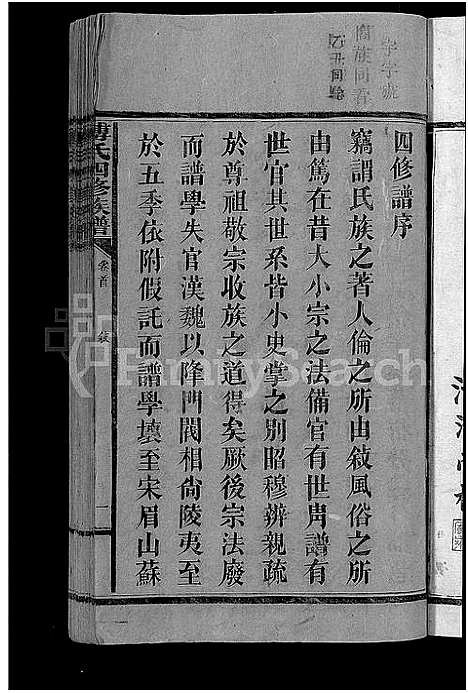 四修譜序
竊謂氏族之著人倫之所由敍風俗之所
由篤在昔大小宗之法備官有世胄譜有
世官其世系皆小史掌之別昭穆辨親疏
於尊祖敬宗收族之道得矣厥後宗法廢
而譜學失官漢魏以降門閥相尙陵夷至
於五季依附假託而譜學壞至宋眉山蘇
氏四修族譜
卷首
一
FamilySearch